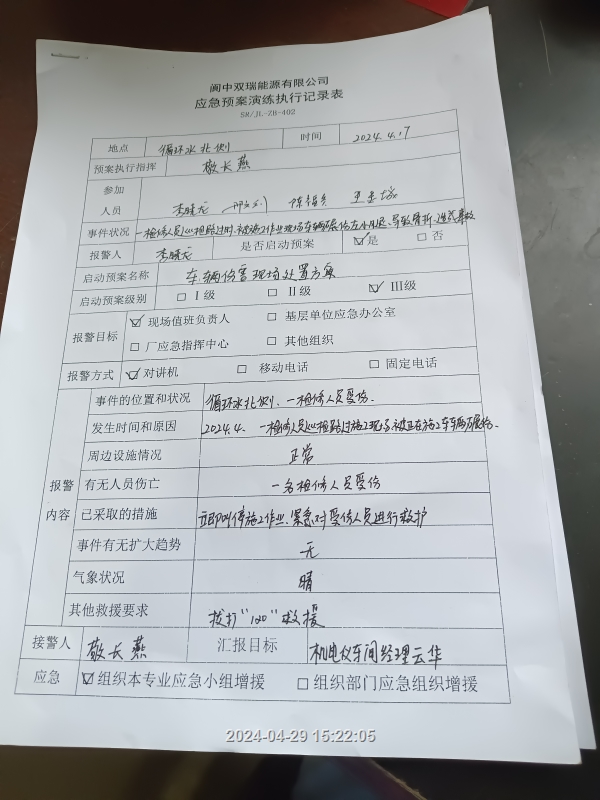 阆中双瑞能源有限公司
应急预案演练执行记录表
SR/JL-ZB-402
地点 循环水北侧 时间 2024.4.17
预案执行指挥 敬长燕
参加
人员 李晓龙
事件状况 一检修人员巡检路过时,被施工作业现场车辆碾伤左小腿,导致骨折,造成事故
报警人 李晓龙 是否启动预案 ☑是 □否
启动预案名称 车辆伤害现场处置方案
启动预案级别 □ Ⅰ级 □ Ⅱ级 ☑ Ⅲ级
报警目标 ☑ 现场值班负责人 □ 基层单位应急办公室
□ 厂应急指挥中心 □ 其他组织
报警方式 ☑ 对讲机 □ 移动电话 □ 固定电话
报警内容
事件的位置和状况 循环水北侧、一检修人员受伤.
发生时间和原因 2024.4. 一检修人员巡检路过施工现场,被正在施工车车辆碾伤.
周边设施情况 正常
有无人员伤亡 一名检修人员受伤
已采取的措施 立即叫停施工作业、紧急对受伤人员进行救护
事件有无扩大趋势 无
气象状况 晴
其他救援要求 拨打"120"救援
接警人 敬长燕 汇报目标 机电仪车间经理云华
应急 ☑ 组织本专业应急小组增援 □ 组织部门应急组织增援
2024-04-29 15:22:05